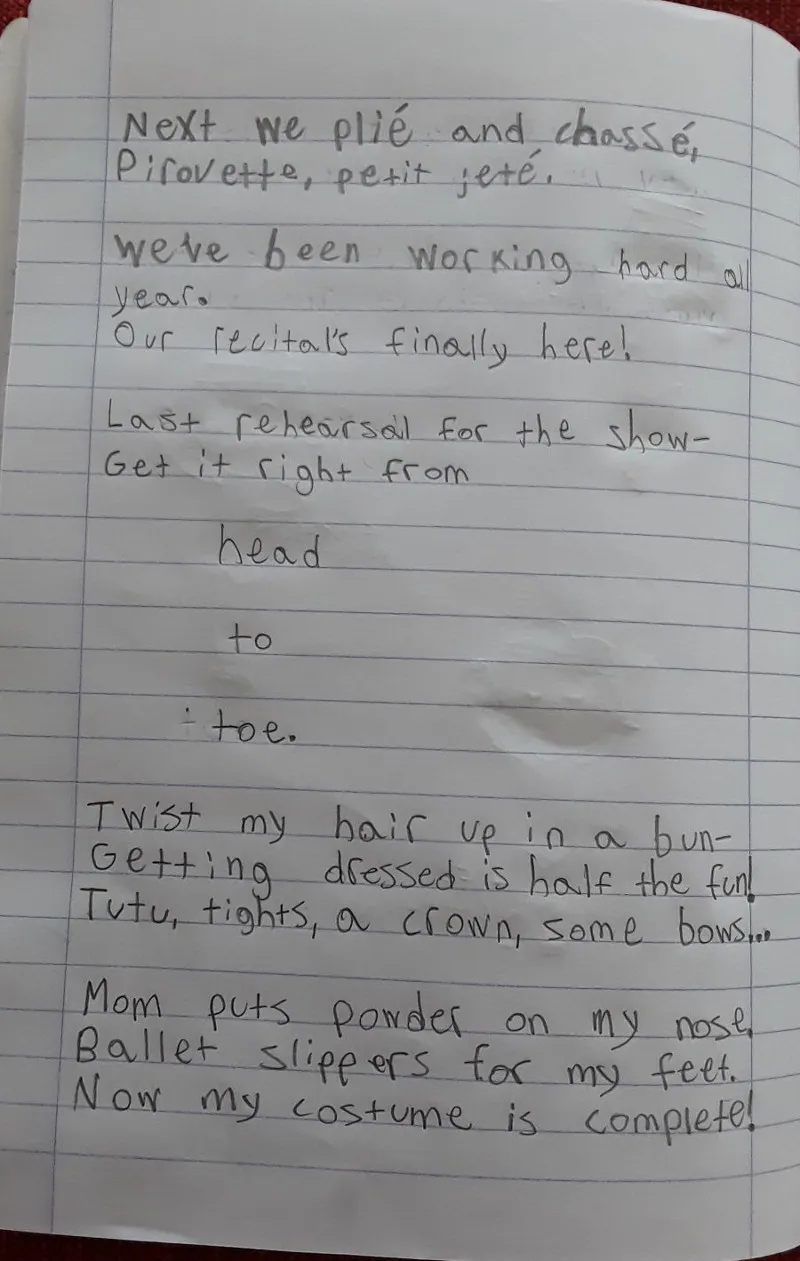 Next we plié and chassé,
Pirouette, petit jeté.
We've been working hard all
year.
Our recital's finally here!
Last rehearsal for the show-
Get it right from
head
to
toe.
Twist my hair up in a bun-
Getting dressed is half the fun!
Tutu, tights, a crown, some bows...
Mom puts powder on my nose.
Ballet slippers for my feet.
Now my costume is complete!